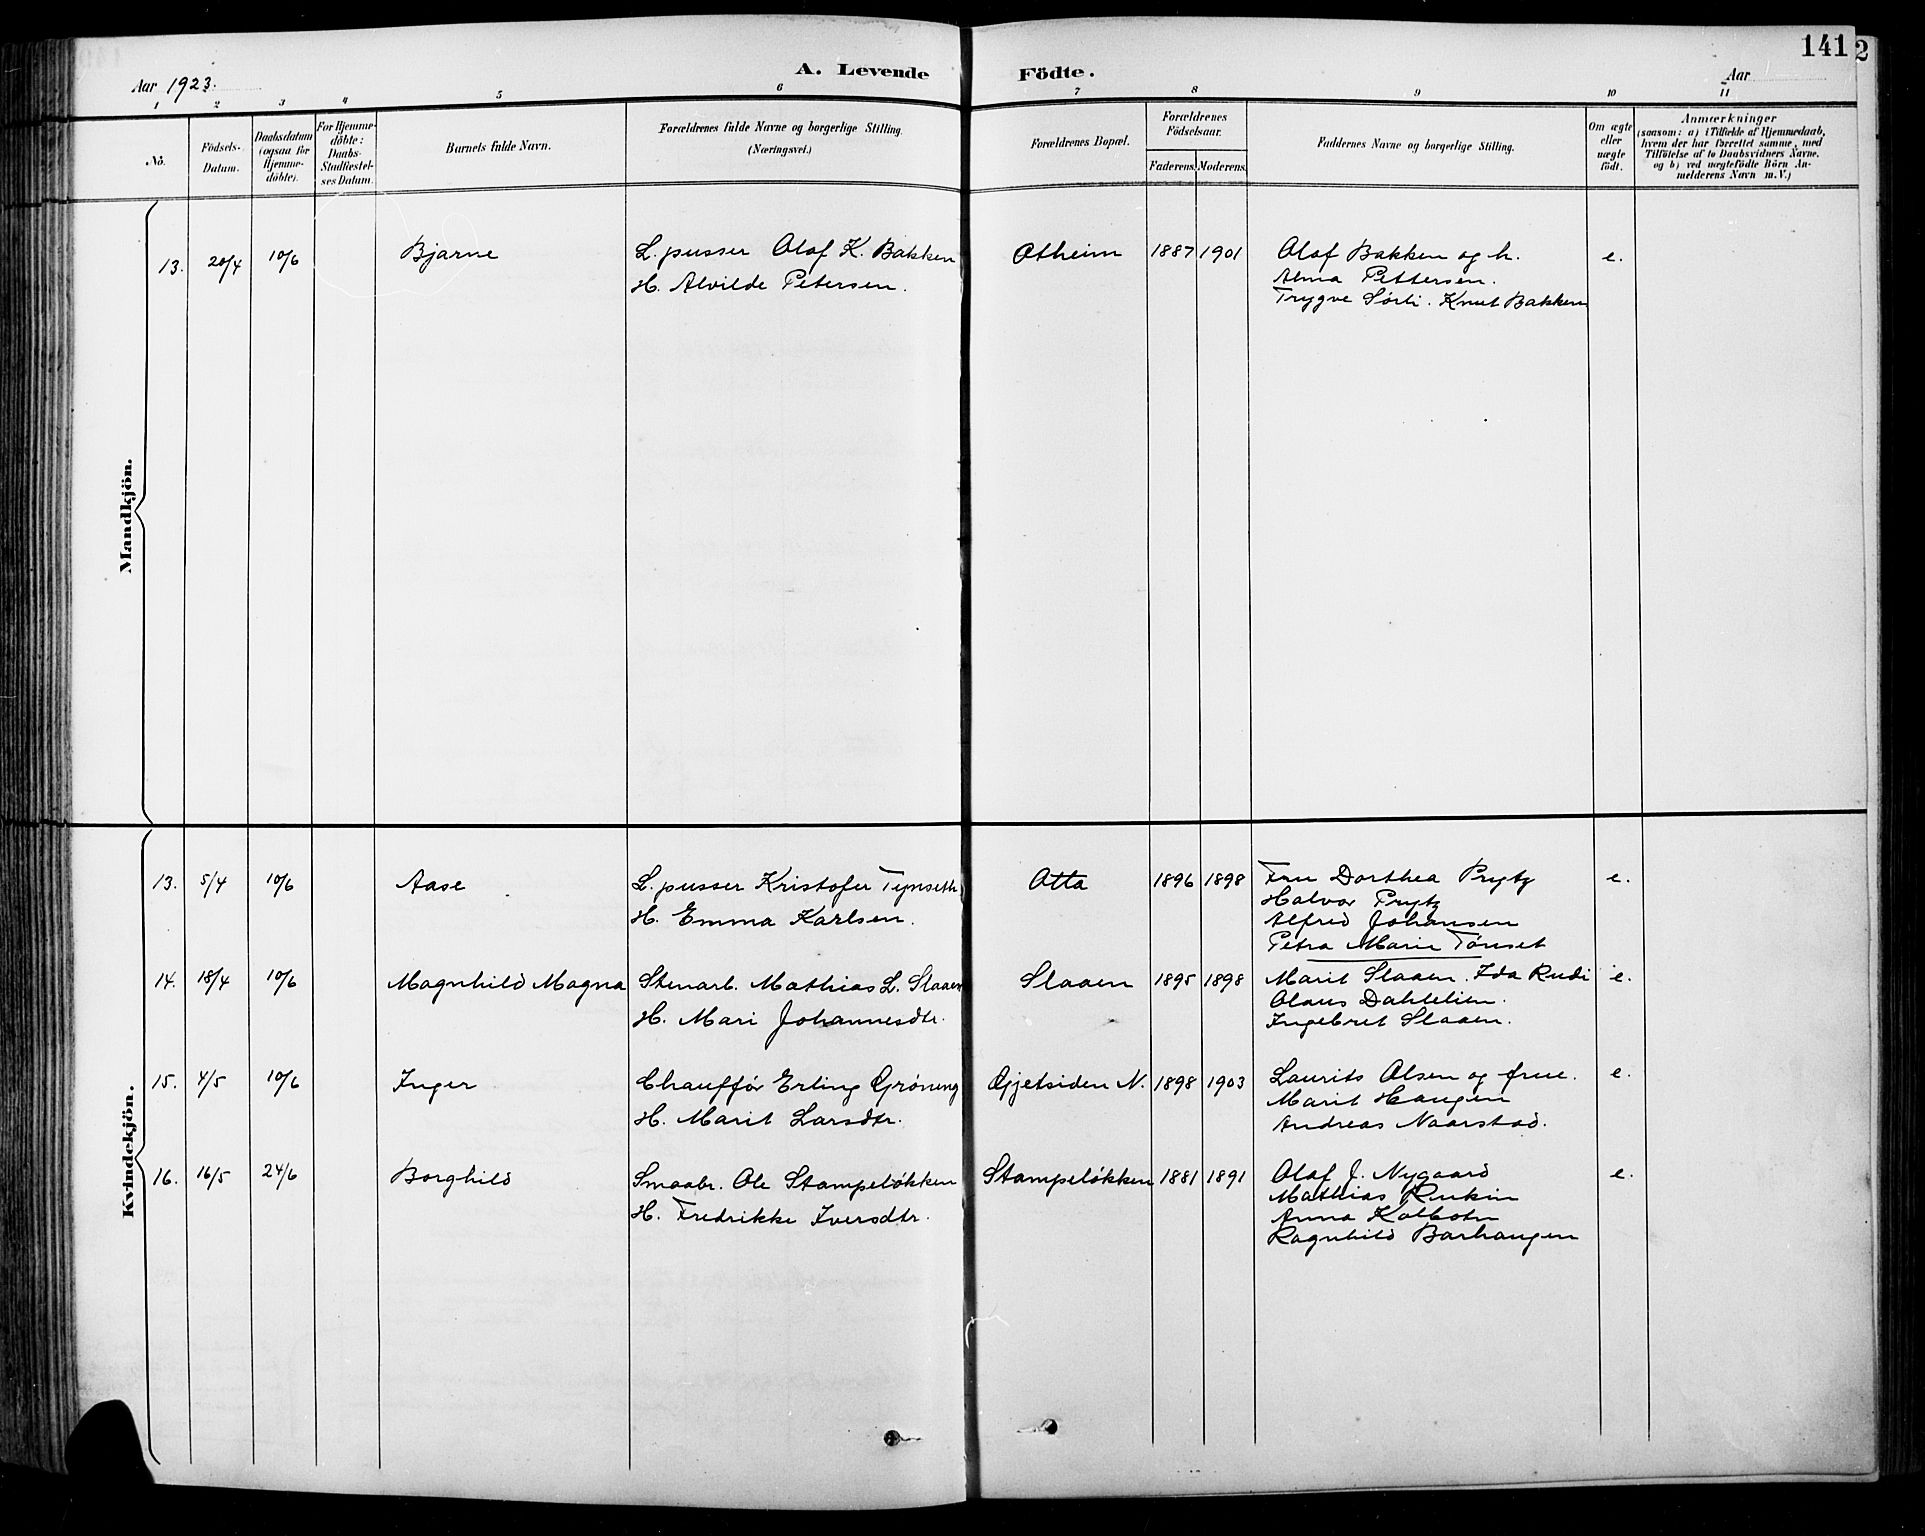 141 2
Aar 1923.
A. Levende Födte.
Aar
1 2 3 4 5 6 7 8 9 10 11
No.
Födsels-Datum.
Daabsdatum (ogsaa for Hjemme-döbte).
For Hjemme-döbte: Daabs-Stadfæstel-ses Datum.
Barnets fulde Navn.
Forældrenes fulde Navne og borgerlige Stilling. (Næringsvei.)
Forældrenes Bopæl.
Forældrenes Födselsaar.
Faderens. Moderens.
Faddernes Navne og borgerlige Stilling.
Om ægte eller uægte födt.
Anmærkninger
(saasom: a) i Tilfælde af Hjemmedaab,
hvem der har forrettet samme, med
Tilföielse af to Daabsvidners Navne.
og b) ved uægtefödte Börn An-
melderens Navn m. V.)
Mandkjön.
13. 20/4 10/6 Bjarne L. pusser Olaf K. Bakken Otheim 1887 1901 Olaf Bakken og h. e.
H. Alvilde Petersen. Alma Pettersen.
Trygve Sørli. Knut Bakken
Kvindekjön.
13. 5/4 10/6 Aase L. pusser Kristofer Tynseth Otta 1896 1898 Fru Dorthea Prytz e.
H. Emma Karlsen. Halvor Prytz
Alfred Johansen
Petra Marie Tønset
14. 18/4 10/6 Magnhild Magna Stenarb. Mathias L. Slaaen Slaaen 1895 1898 Marit Slaaen. Ida Rudi e.
H. Mari Johannesdtr. Olaus Dahlelien.
Ingebret Slaaen.
15. 4/5 10/6 Inger Chauffør Erling Grøneng Gjetsiden N. 1898 1903 Laurits Olsen og frue. e.
H. Marit Larsdtr. Marit Haugen
Andreas Naarstad.
16. 16/5 24/6 Borghild Smaabr. Ole Stampeløkken Stampeløkken 1881 1891 Olaf J. Nygaard e.
H. Fredrikke Iversdtr. Mathias Rukin
Anna Kolbotn
Ragnhild Barhaugen